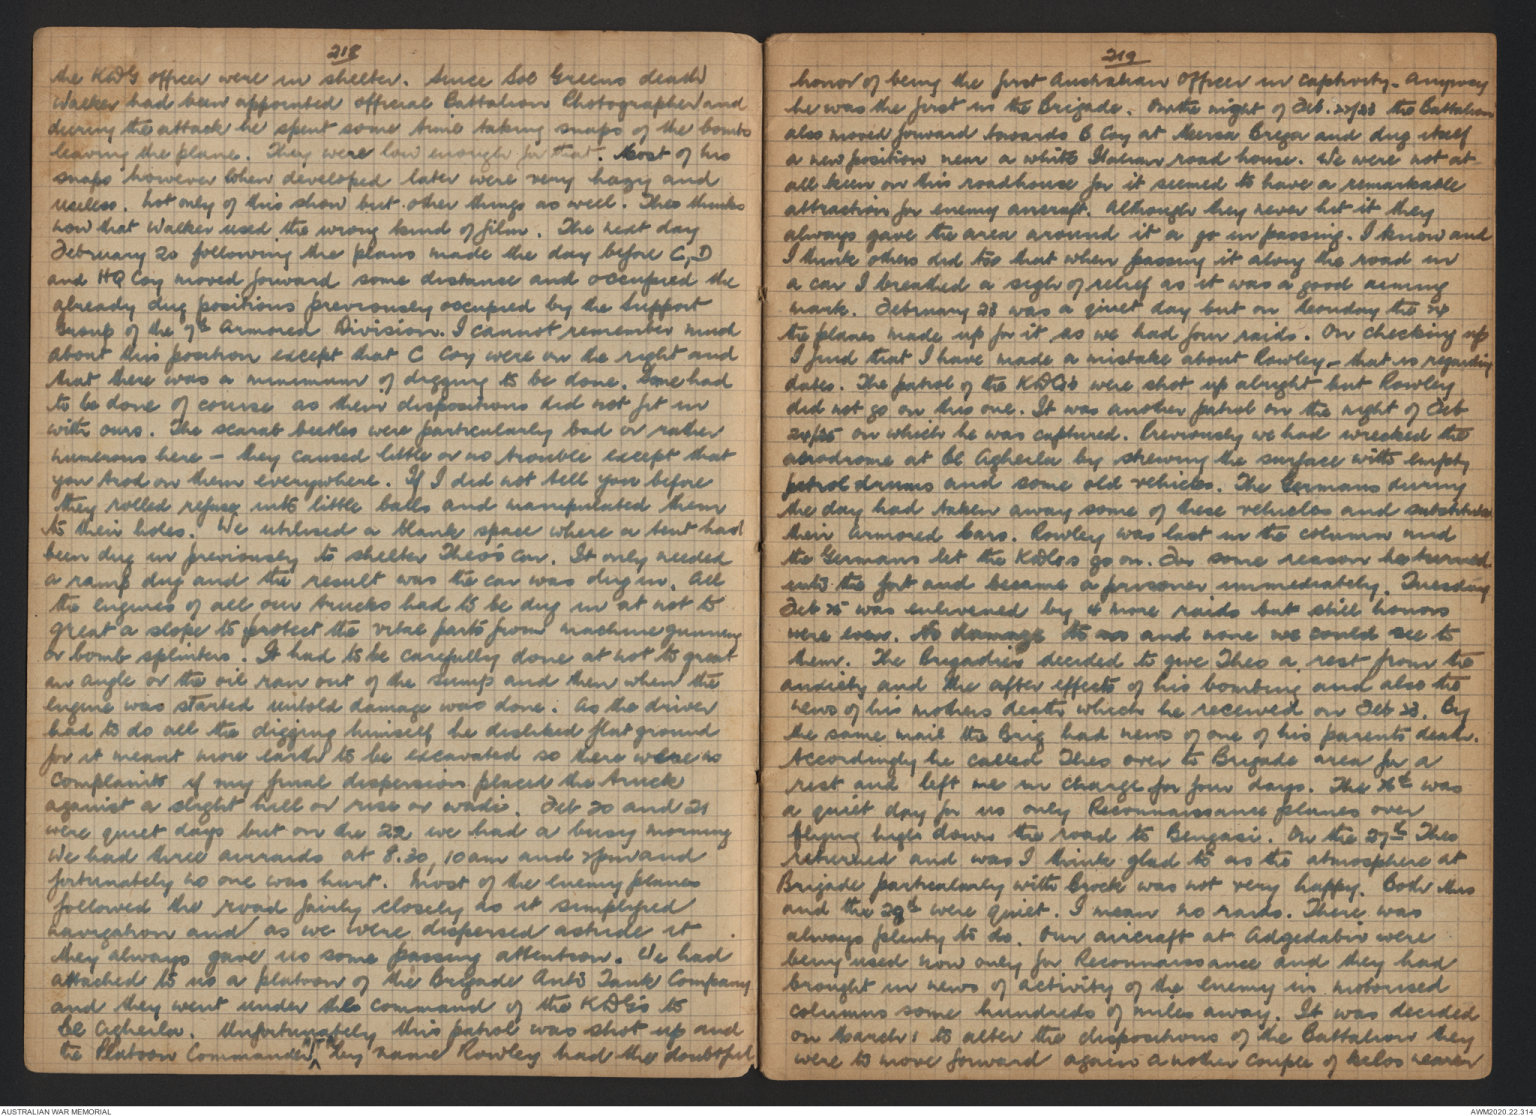 218
the KDG officer were in shelter. Since Sol Greens death
Walker had been appointed official Battalion Photographer and
during the attack he spent some time taking snaps of the bombs
leaving the plane. They were low enough for that. Most of his
snaps however when developed later were very hazy and
useless. Not only of this show but other things as well. Theo thinks
now that Walker used the wrong kind of film. The next day
February 20 following the plans made the day before C, D
and HQ Coy moved forward some distance and occupied the
already dug positions previously occupied by the Support
Group of the 7th Armored Division. I cannot remember much
about this position except that C Coy were on the right and
that there was a minimum of digging to be done. Some had
to be done of course as their dispositions did not fit in
with ours. The scarab beetles were particularly bad or rather
numerous here - they caused little or no trouble except that
you trod on them everywhere. If I did not tell you before
they rolled refuse into little balls and manipulated them
to their holes. We utilised a blank space where a tent had
been dug in previously to shelter Theo's car. It only needed
a ramp dug and the result was the car was dug in. All
the engines of all our trucks had to be dug in at not to
great a slope to protect the vital parts from machine gunning
or bomb splinters. It had to be carefully done at not to great
an angle or the oil ran out of the sump and then when the
engine was started untold damage was done. As the driver
had to do all the digging himself he disliked flat ground
for it meant more earth to be excavated so there were no
complaints if my final dispersion placed the truck
against a slight hill or rise or wadi. Feb 20 and 21
were quiet days but on the 22 we had a busy morning
We had three airraids at 8.30, 10am and 2pm and
fortunately no one was hurt. Most of the enemy planes
followed the road fairly closely as it simplified
navigation and as we were dispersed astride it
they always gave us some passing attention. We had
attached to us a platoon of the Brigade Anti Tank Company
and they went under the command of the KDG's to
El Agheila. Unfortunately this patrol was shot up and
the Platoon Commander, by name Rowley had the doubtful
219
honor of being the first Australian Officer in captivity. Anyway
he was the first in the Brigade. On the night of Feb. 22/23 the Battalion
also moved forward towards B Coy at Mersa Brega and dug itself
a new position near a white Italian road house. We were not at
all keen on this roadhouse for it seemed to have a remarkable
attraction for enemy aircraft. Although they never hit it they
always gave the area around it a go in passing. I know and
I think others did too that when passing it along the road in
a car I breathed a sigh of relief as it was a good aiming
mark. February 23 was a quiet day but on Monday the 24
the planes made up for it as we had four raids. On checking up
I find that I have made a mistake about Rowley - that is regarding
dates. The patrol of the KDG's were shot up alright but Rowley
did not go on this one. It was another patrol on the night of Feb
24/25 on which he was captured. Previously we had wrecked the
aerodrome at El Agheila by strewing the surface with empty
petrol drums and some old vehicles. The Germans during
the day had taken away some of these vehicles and substituted
their armored cars. Rowley was last in the column and
the Germans let the KDGs go on. For some reason he turned
into the fort and became a prisoner immediately. Tuesday
Feb 25 was enlivened by 4 more raids but still honors
were even. No damage to us and none we could see to
them. The Brigadier decided to give Theo a rest from the
anxiety and the after effects of his bombing and also the
news of his mothers death which he received on Feb 23. By
the same mail the Brig had news of one of his parents death.
Accordingly he called Theo over to Brigade area for a
rest and left me in charge for four days. The 26th was
a quiet day for us only Reconnaissance planes over
flying high down the road to Bengasi. On the 27th Theo
returned and was I think glad to as the atmosphere at
Brigade particularly with Crock was not very happy. Both this
and the 28th were quiet. I mean no raids. There was
always plenty to do. Our aircraft at Adgedabia were
being used now only for Reconnaissance and they had
brought in news of activity of the enemy in motorised
columns some hundreds of miles away. It was decided
on March 1 to alter the dispositions of the Battalion they
were to move forward again another couple of kilos nearer
AUSTRALIAN WAR MEMORIAL
AWM2020.22.314